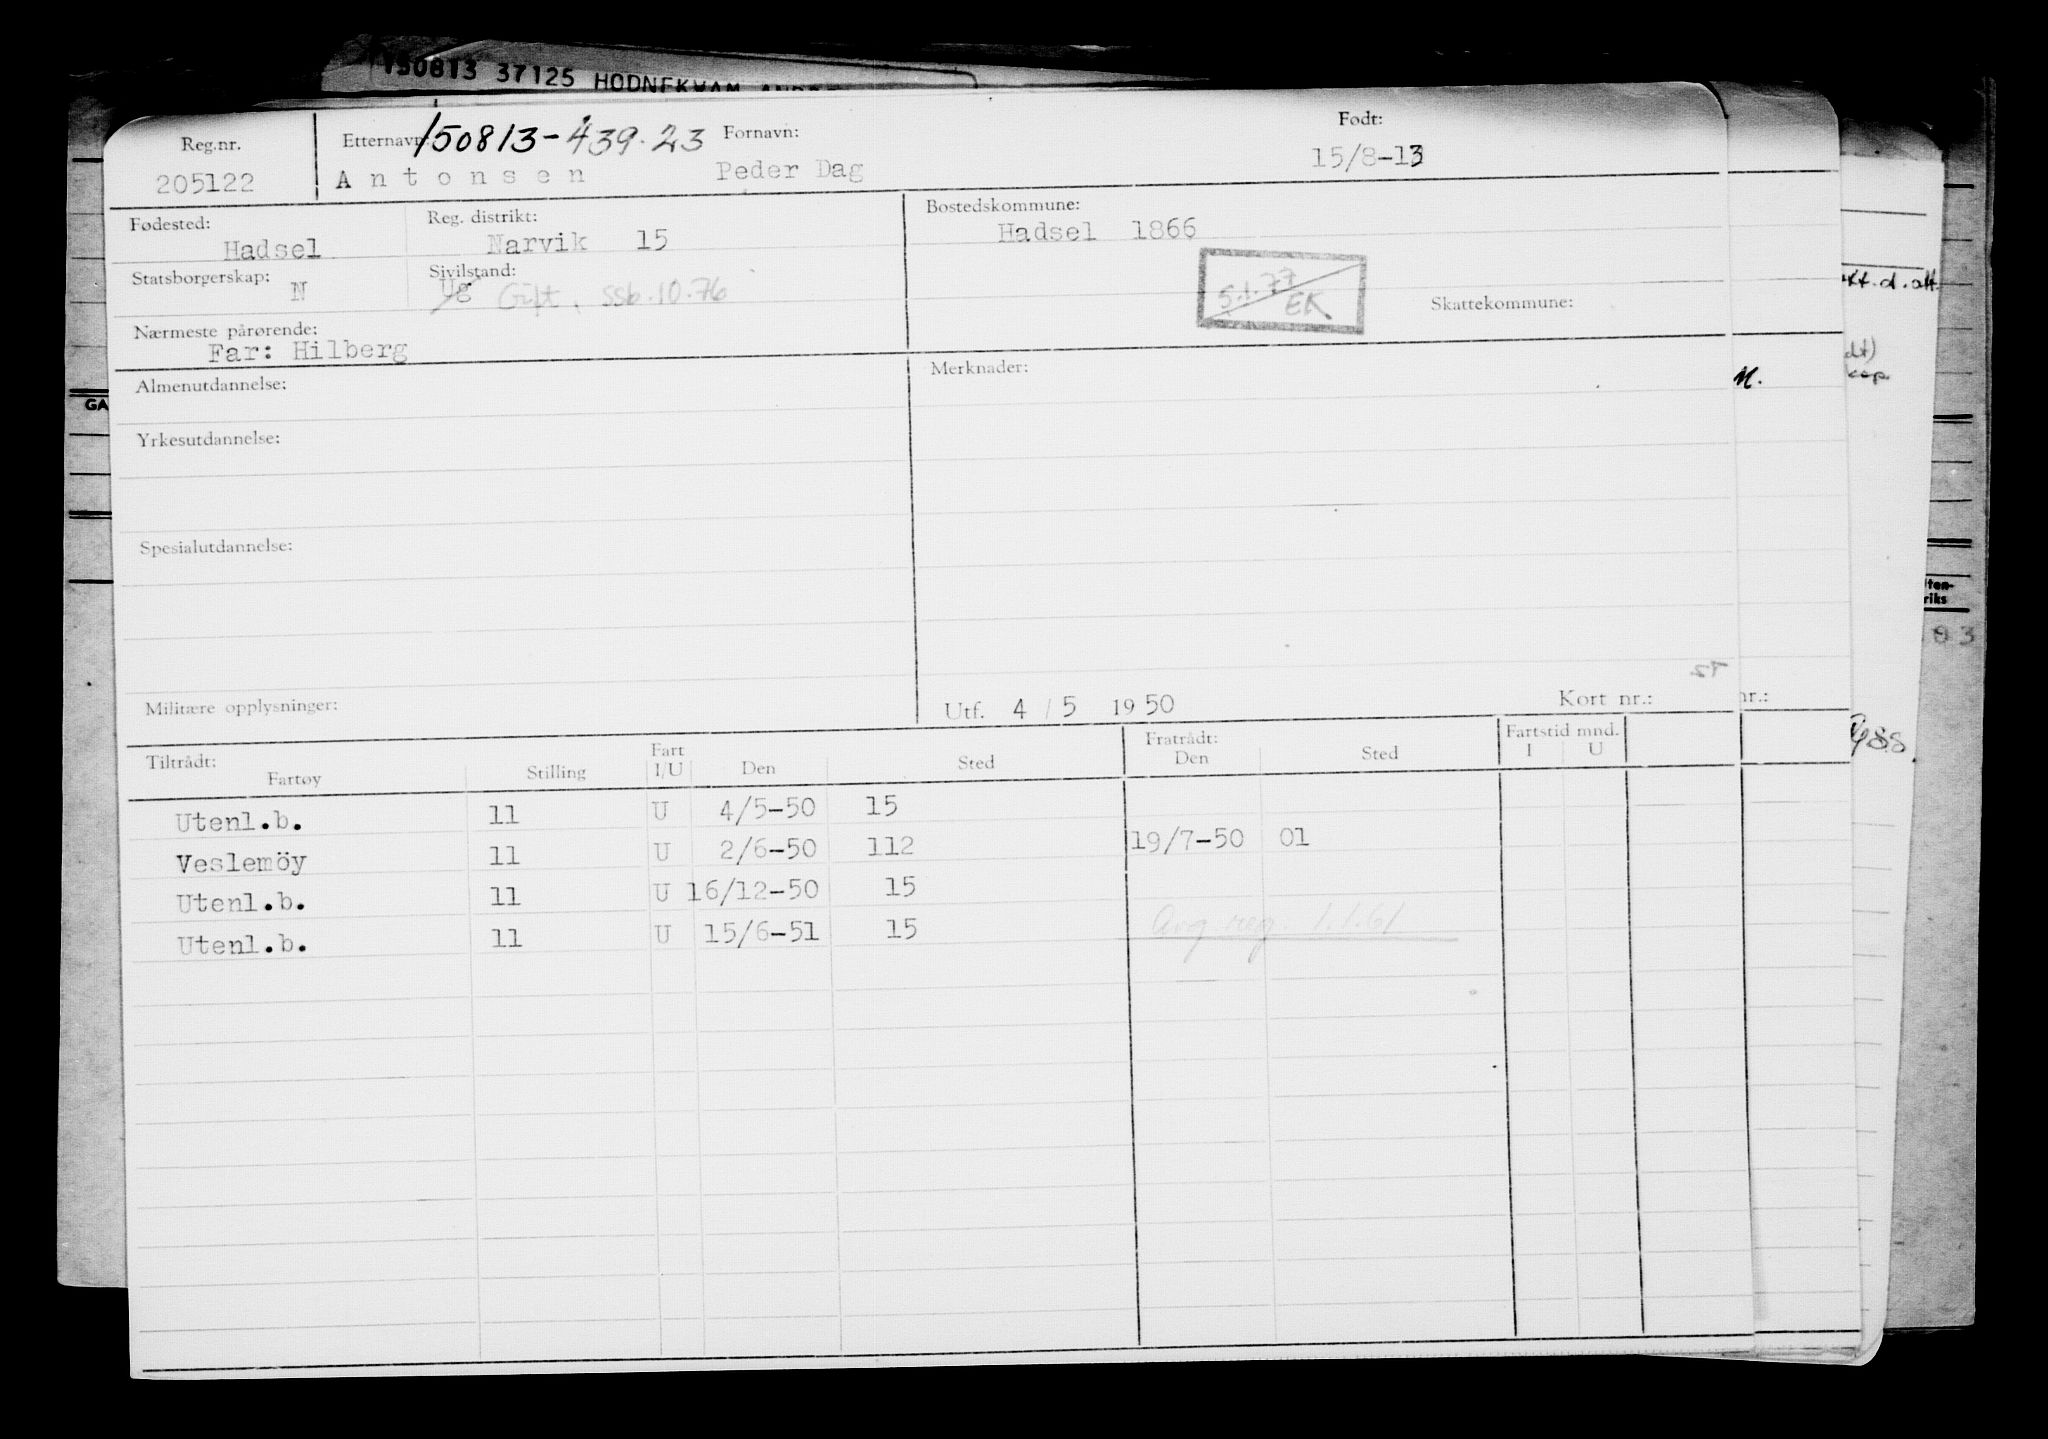 150813 37125 HODNEKVAM
Reg.nr. Etternavn: 150813-439.23 Fornavn: Født:
205122 Antonsen Peder Dag 15/8-13
Fødested: Reg. distrikt: Bostedskommune:
Hadsel Narvik 15 Hadsel 1866
Statsborgerskap: Sivilstand:
N Ug Gift, ssb.10.76 5.1.77 EK Skattekommune:
Nærmeste pårørende:
Far: Hilberg
Almenutdannelse: Merknader:
Yrkesutdannelse:
Spesialutdannelse:
Militære opplysninger: Utf. 4 / 5 1950 Kort nr.: nr.:
Tiltrådt: Fart Fratrådt: Fartstid mnd.
Fartøy Stilling I/U Den Sted Den Sted I U
Utenl.b. 11 U 4/5-50 15
Veslemöy 11 U 2/6-50 112 19/7-50 01
Utenl.b. 11 U 16/12-50 15
Utenl.b. 11 U 15/6-51 15 Avg. reg. 1.1.61